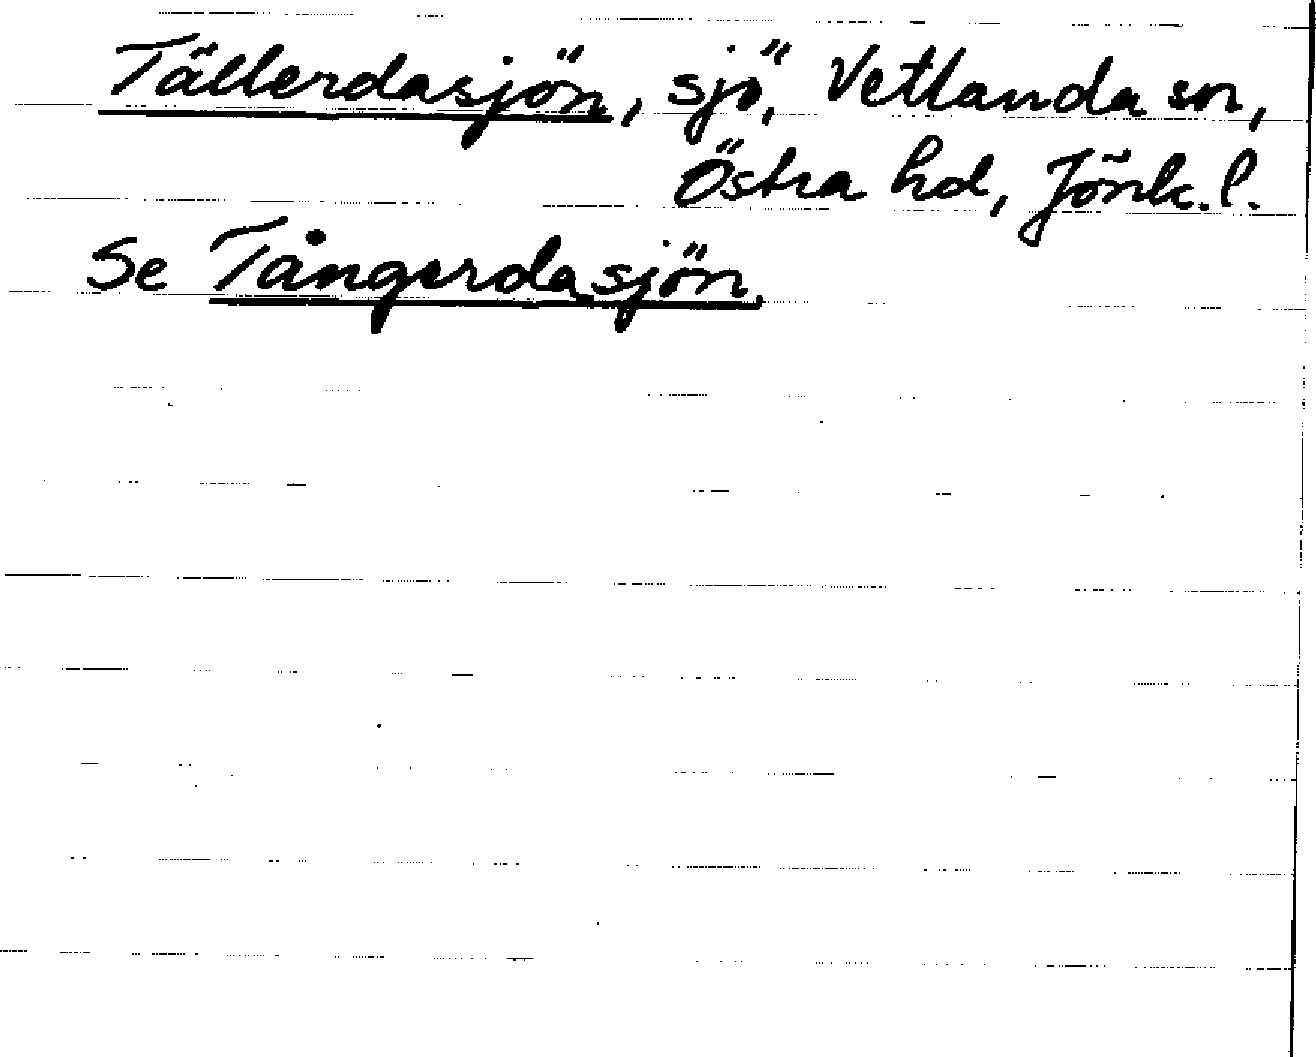 Tällerdasjön, sjö, Vetlanda sn,
Östra hd, Jönk.l.
Se Tångerdasjön